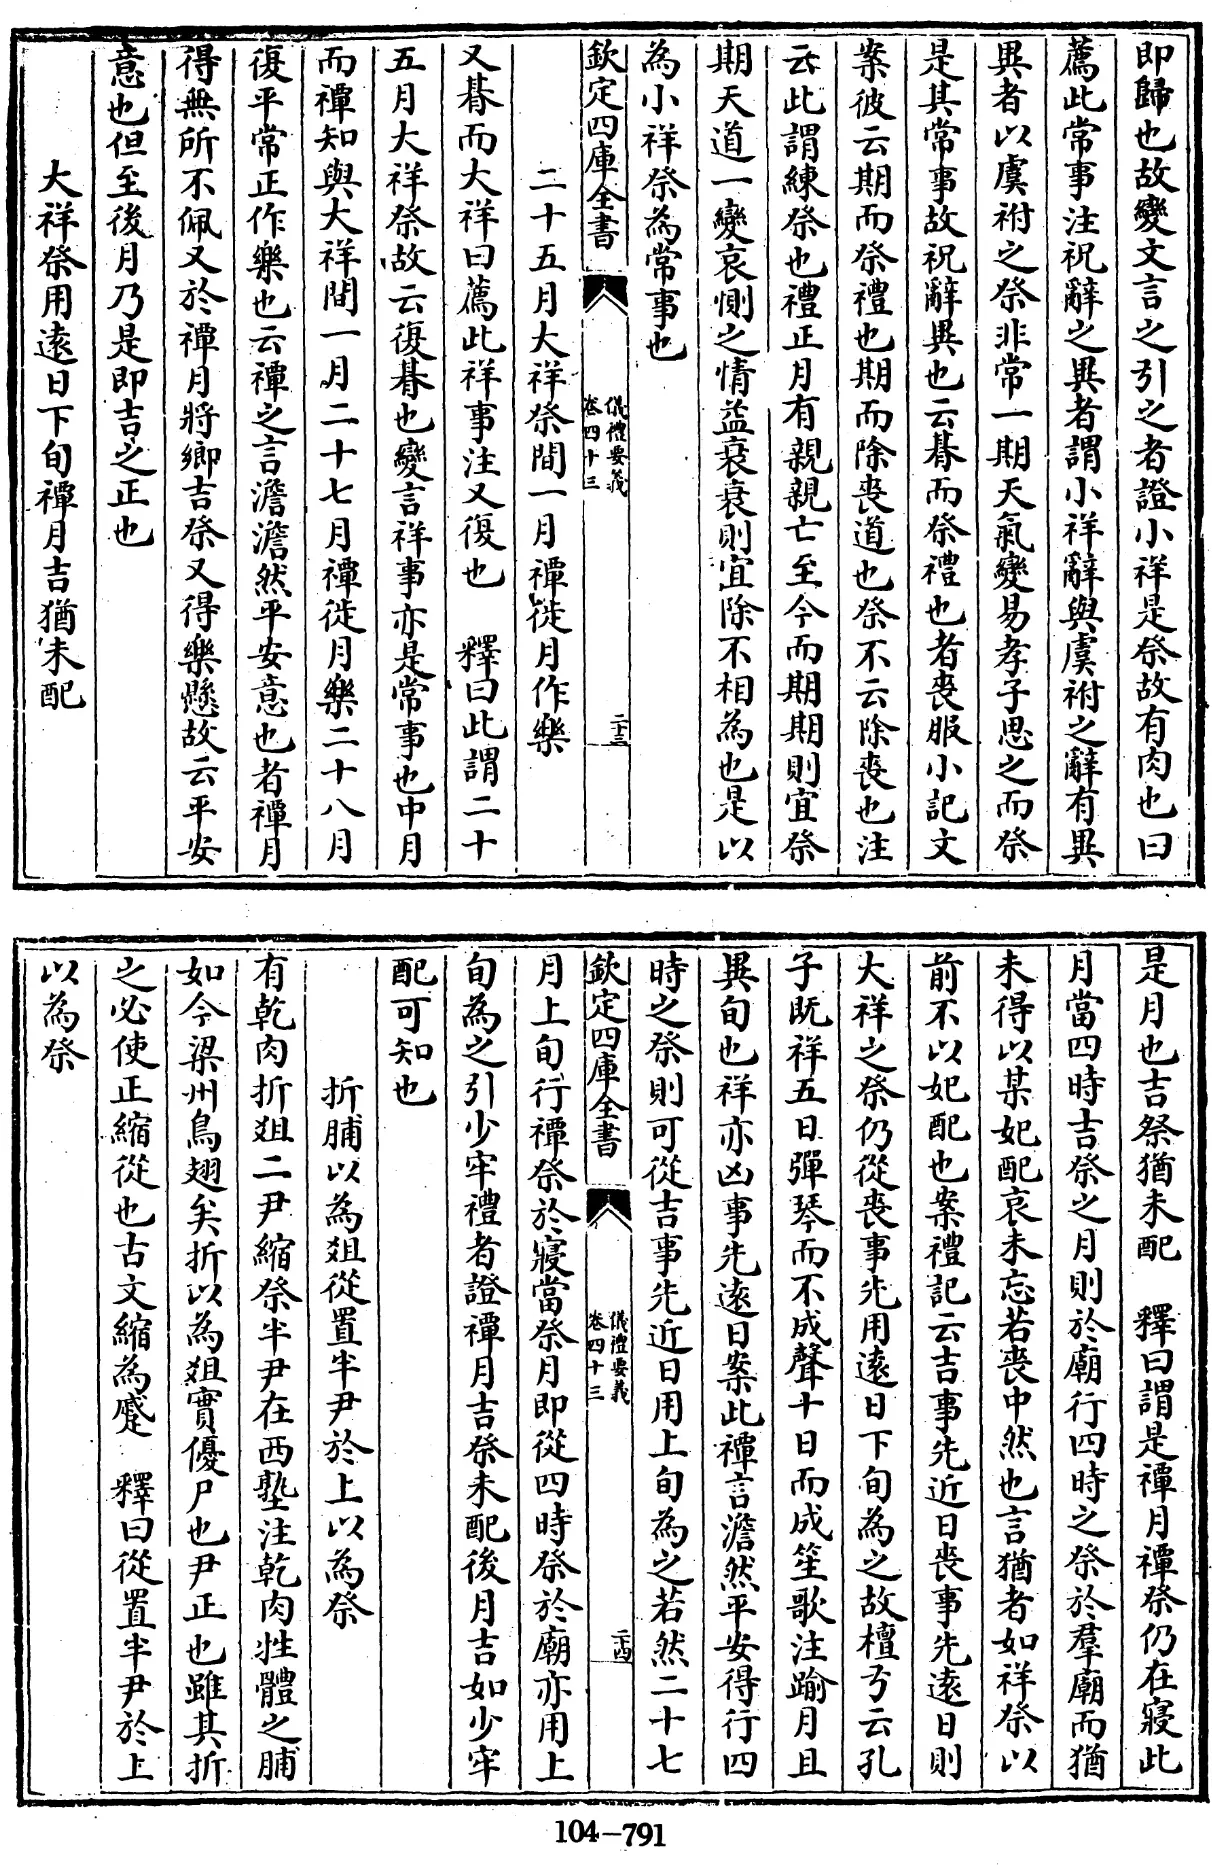 即歸也故變文言之引之者證小祥是祭故有肉也曰
薦此常事注祝辭之異者謂小祥辭與虞祔之辭有異
異者以虞祔之祭非常一期天氣變易孝子思之而祭
是其常事故祝辭異也云朞而祭禮也者喪服小記文
案彼云期而祭禮也期而除喪道也祭不云除喪也注
云此謂練祭也禮正月有親親亡至今而期期則宜祭
期天道一變哀惻之情益衰衰則宜除不相為也是以
為小祥祭為常事也
欽定四庫全書
儀禮要義
卷四十三
二十三
二十五月大祥祭間一月禫徙月作樂
又朞而大祥曰薦此祥事注又復也　釋曰此謂二十
五月大祥祭故云復朞也變言祥事亦是常事也中月
而禫知與大祥間一月二十七月禫徙月樂二十八月
復平常正作樂也云禫之言澹澹然平安意也者禫月
得無所不佩又於禫月將鄉吉祭又得樂懸故云平安
意也但至後月乃是即吉之正也
大祥祭用遠日下旬禫月吉猶未配
是月也吉祭猶未配　釋曰謂是禫月禫祭仍在寢此
月當四時吉祭之月則於廟行四時之祭於羣廟而猶
未得以某妃配哀未忘若喪中然也言猶者如祥祭以
前不以妃配也案禮記云吉事先近日喪事先遠日則
大祥之祭仍從喪事先用遠日下旬為之故檀弓云孔
子既祥五日彈琴而不成聲十日而成笙歌注踰月且
異旬也祥亦凶事先遠日案此禫言澹然平安得行四
時之祭則可從吉事先近日用上旬為之若然二十七
欽定四庫全書
儀禮要義
卷四十三
二十四
月上旬行禫祭於寢當祭月即從四時祭於廟亦用上
旬為之引少牢禮者證禫月吉祭未配後月吉如少牢
配可知也
折脯以為俎從置半尹於上以為祭
有乾肉折俎二尹縮祭半尹在西塾注乾肉牲體之脯
如今梁州烏翅矣折以為俎實優尸也尹正也雖其折
之必使正縮從也古文縮為蹙　釋曰從置半尹於上
以為祭
104-791